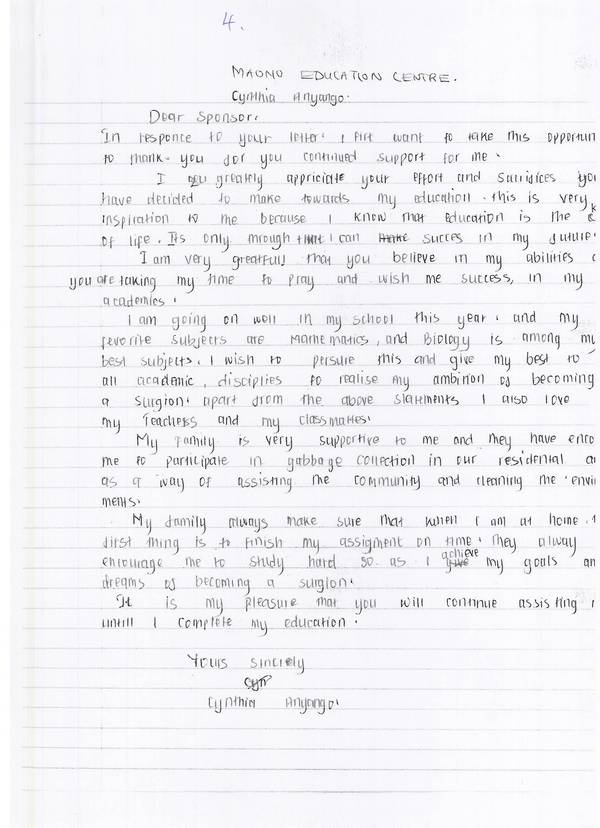 4.
MAONO EDUCATION CENTRE.
Cynthia Anyango.
Dear Sponsor.
In responce to your letter. I firt want to take this opportun
to thank you for you continued support for me.
I greately appriciate your effort and sacrifices you
have decided to make towards my education. this is very
inspiration to me because I know that education is the
of life. Its only through that I can succes in my future.
I am very greatfull that you believe in my abilities
you are taking my time to pray and wish me success, in my
academics.
I am going on well in my school this year. and my
favorite subjects are Mathematics, and Biology is among my
best subjects. I wish to persure this and give my best to
all academic, disciplies to realise my ambition of becoming
a surgion. apart from the above statments I also love
my Teachers and my classmates.
My family is very supportive to me and they have enco
me to participate in gabbage collection in our residental a
as a way of assisting the community and cleaning the envi
ments.
My family always make sure that when I am at home.
first thing is to finish my assigment on time. They alway
encourage me to study hard so as I achieve my goals an
dreams of becoming a surgion.
It is my pleasure that you will continue assisting
untill I complete my education.
Yours sinciely
Cynthia Anyango.